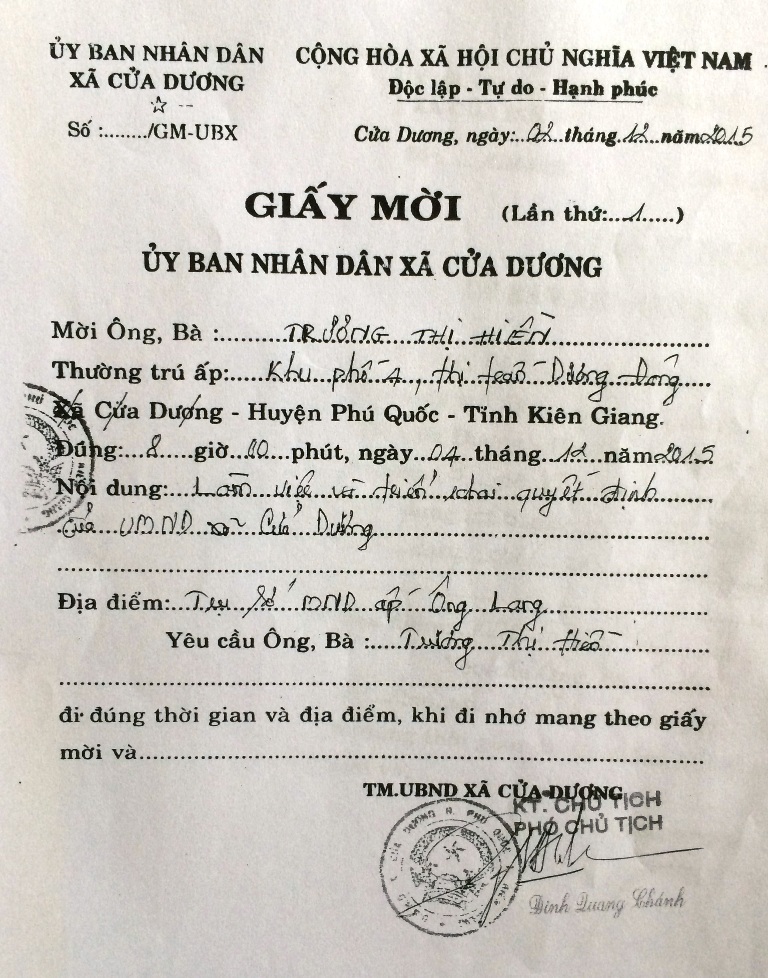 ỦY BAN NHÂN DÂN
XÃ CỬA DƯƠNG
Số :......../GM-UBX
CỘNG HÒA XÃ HỘI CHỦ NGHĨA VIỆT NAM
Độc lập - Tự do - Hạnh phúc
Cửa Dương, ngày:..02..tháng.12..năm 2015
GIẤY MỜI (Lần thứ:...1.....)
ỦY BAN NHÂN DÂN XÃ CỬA DƯƠNG
Mời Ông, Bà :.........TRƯƠNG THỊ HIỀN
Thường trú ấp:.....Khu phố 4, thị trấn Dương Đông
Xã Cửa Dương - Huyện Phú Quốc - Tỉnh Kiên Giang.
Đúng:...8.....giờ..00...phút, ngày..04..tháng..12..năm 2015
Nội dung:...Làm việc và triển khai quyết định
của UBND xã Cửa Dương
Địa điểm:..Trụ Sở BND ấp Ông Lang
Yêu cầu Ông, Bà :....Trương Thị Hiền
đi đúng thời gian và địa điểm, khi đi nhớ mang theo giấy
mời và
TM.UBND XÃ CỬA DƯƠNG
KT. CHỦ TỊCH
PHÓ CHỦ TỊCH
Đinh Quang Chánh